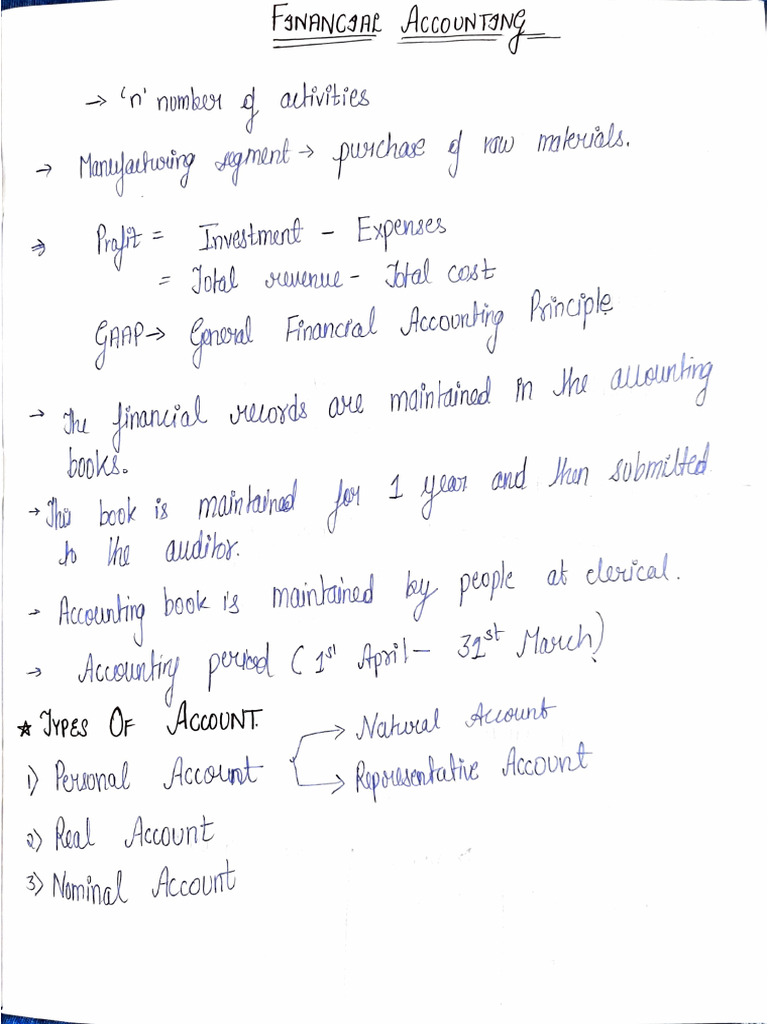 FINANCIAL ACCOUNTING
→ 'n' number of activities
→ Manufacturing segment → purchase of raw materials.
⇒ Profit = Investment - Expenses
= Total revenue - Total cost
GAAP → General Financial Accounting Principle
→ The financial records are maintained in the accounting
books.
→ This book is maintained for 1 year and then submitted
to the auditor.
→ Accounting book is maintained by people at clerical.
→ Accounting period (1st April - 31st March)
★ TYPES OF ACCOUNT.
1) Personal Account { → Natural Account
→ Representative Account
2) Real Account
3) Nominal Account